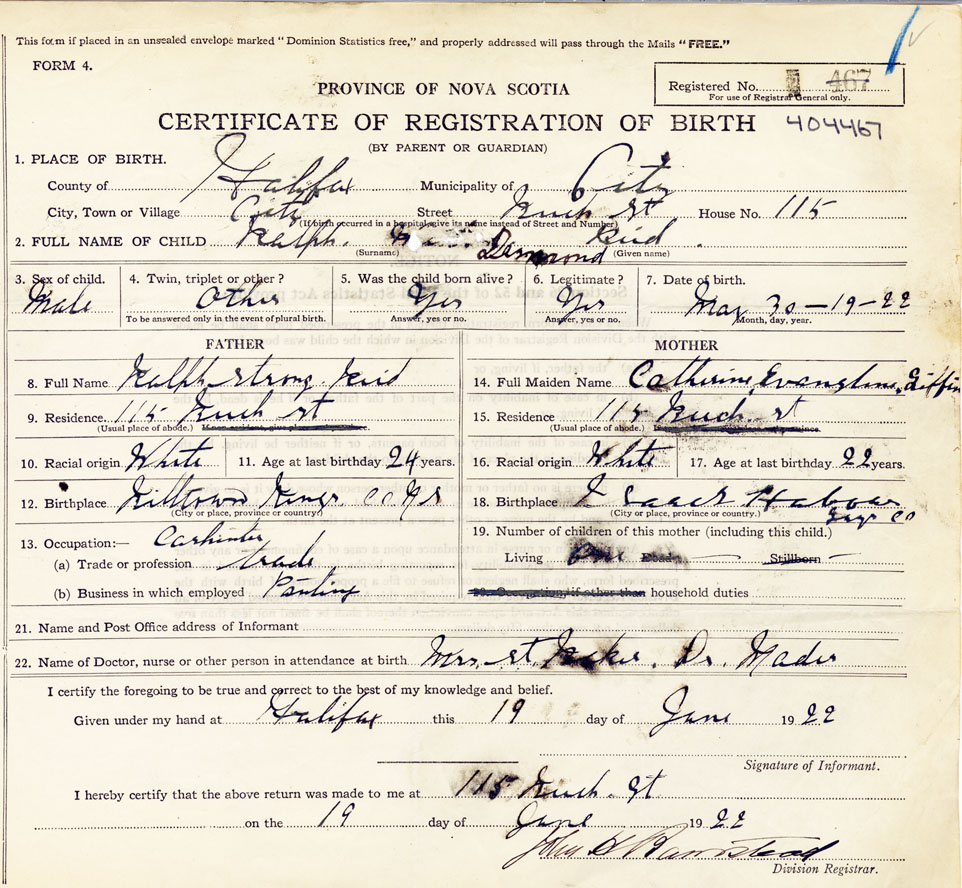 This form if placed in an unsealed envelope marked "Dominion Statistics free," and properly addressed will pass through the Mails "FREE."
FORM 4.
Registered No. 467
For use of Registrar General only.
PROVINCE OF NOVA SCOTIA
CERTIFICATE OF REGISTRATION OF BIRTH 404467
(BY PARENT OR GUARDIAN)
1. PLACE OF BIRTH.
County of Halifax Municipality of City
City, Town or Village City Street St House No. 115
(If birth occurred in a hospital, give its name instead of Street and Number)
2. FULL NAME OF CHILD Ralph. Desmond
(Surname) (Given name)
3. Sex of child. 4. Twin, triplet or other? 5. Was the child born alive? 6. Legitimate? 7. Date of birth.
Male Other Yes Yes May 30-19-22
To be answered only in the event of plural birth. Answer, yes or no. Answer, yes or no. Month, day, year.
FATHER MOTHER
8. Full Name Ralph Strong 14. Full Maiden Name Catherine Evangline Giffin
9. Residence. 115 st 15. Residence 115 st
(Usual place of abode.) (Usual place of abode.)
10. Racial origin White 11. Age at last birthday 24 years. 16. Racial origin White 17. Age at last birthday 22 years.
12. Birthplace Kings Co NS 18. Birthplace Isaacs Co
(City or place, province or country) (City or place, province or country.)
13. Occupation:— Carpinter 19. Number of children of this mother (including this child.)
(a) Trade or profession trade Living One Dead Stillborn
(b) Business in which employed 20. Occupation, if other than household duties
21. Name and Post Office address of Informant
22. Name of Doctor, nurse or other person in attendance at birth Mrs. Dr. Mader
I certify the foregoing to be true and correct to the best of my knowledge and belief.
Given under my hand at Halifax this 19 day of June 1922
Signature of Informant.
I hereby certify that the above return was made to me at 115 St
on the 19 day of June 1922
John
Division Registrar.